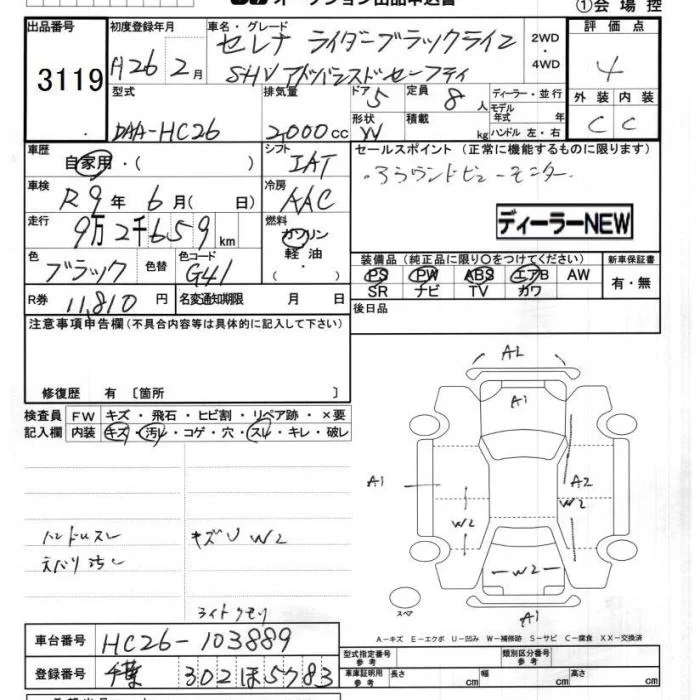 オークション出品申込書
①会場控
出品番号
3119
初度登録年月
H26 2月
車名・グレード
セレナ ライダーブラックライン
SHV アドバンスドセーフティ
2WD・4WD
評価点
4
外装 内装
C C
型式
DAA-HC26
排気量
2,000cc
ドア
5
定員
8人
形状
W
積載
kg
ディーラー・並行
モデル年式 年
ハンドル 左・右
車歴
自家用・( )
シフト
IAT
セールスポイント(正常に機能するものに限ります)
・アラウンドビューモニター
ディーラーNEW
車検
R9年6月( 日)
冷房
AAC
走行
9万2千659km
燃料
ガソリン
軽油
・
( )
色
ブラック
色替
色コード
G41
装備品(純正品に限り○をつけてください)
PS PW ABS エアB AW
SR ナビ TV カワ
新車保証書
有・無
R券 11,810円
名変通知期限 月 日
後日品
注意事項申告欄(不具合内容等は具体的に記入して下さい)
修復歴 有〔箇所 〕
検査員記入欄
FW キズ・飛石・ヒビ割・リペア跡・×要
内装 キズ・汚れ・コゲ・穴・スレ・キレ・破レ
ハンドルスレ
キズU W2
ライトクモリ
A2
A1
A1
A2
W2
W2
W2
A1
スペア
A-キズ E-エクボ U-凹み W-補修跡 S-サビ C-腐食 XX-交換済
車台番号 HC26-103889
登録番号 千葉 302 ほ 5783
型式指定番号 参考
類別区分番号 参考
車庫証明用 参考
長さ cm
幅 cm
高さ cm